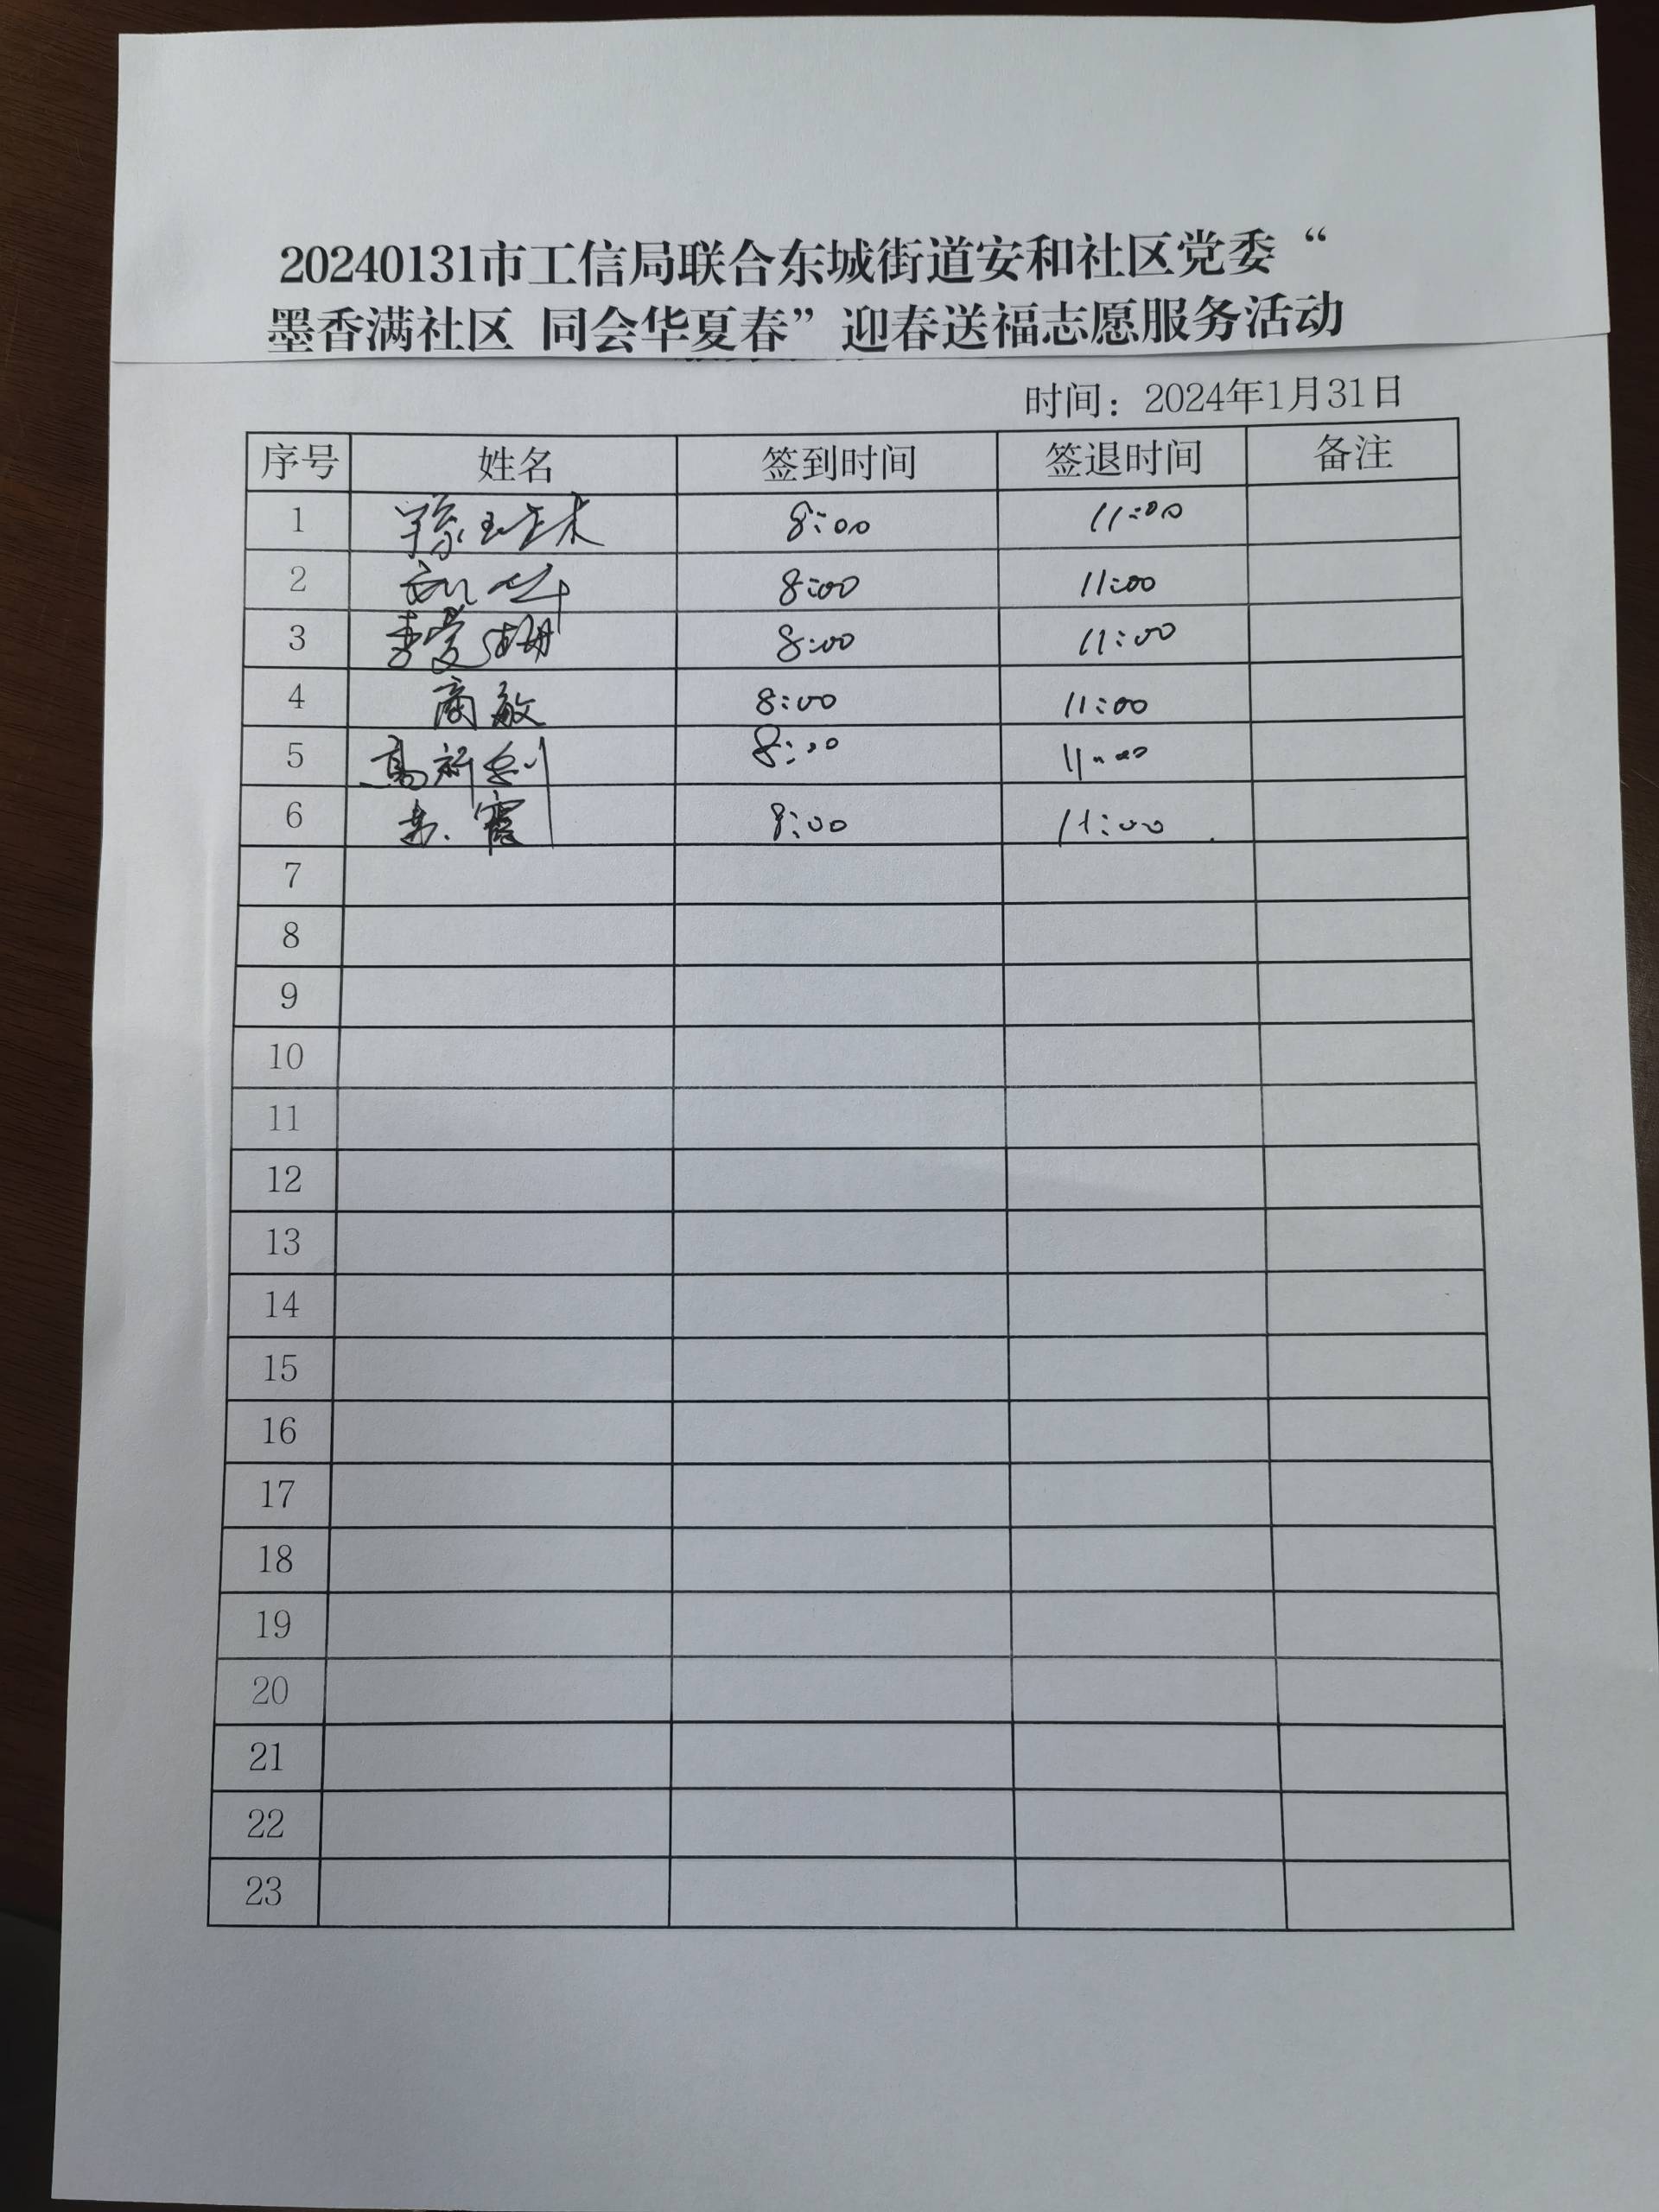 20240131市工信局联合东城街道安和社区党委“
墨香满社区 同会华夏春”迎春送福志愿服务活动
时间：2024年1月31日
序号 姓名 签到时间 签退时间 备注
1 8:00 11:00
2 8:00 11:00
3 8:00 11:00
4 商敏 8:00 11:00
5 8:00 11:00
6 8:00 11:00
7
8
9
10
11
12
13
14
15
16
17
18
19
20
21
22
23